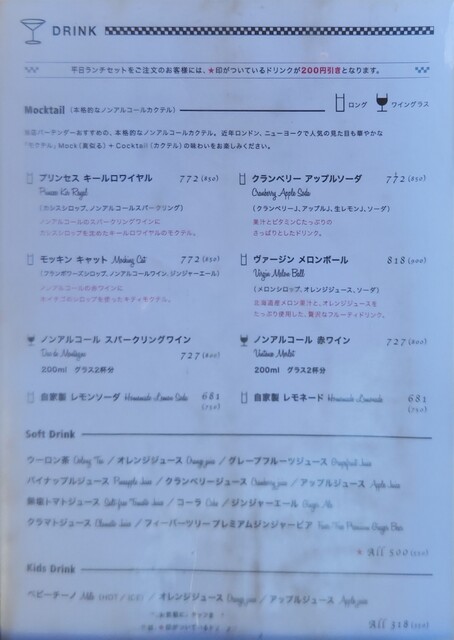 DRINK
平日ランチセットをご注文のお客様には、★印がついているドリンクが200円引きとなります。
Mocktail（本格的なノンアルコールカクテル）
ロング ワイングラス
当店バーテンダーおすすめの、本格的なノンアルコールカクテル。近年ロンドン、ニューヨークで人気の見た目も華やかな
"モクテル" Mock（真似る）+ Cocktail（カクテル）の味わいをお楽しみください。
プリンセス キールロワイヤル 772 (850)
Princess Kir Royal
（カシスシロップ、ノンアルコールスパークリング）
ノンアルコールのスパークリングワインに
カシスシロップを沈めたキールロワイヤルのモクテル。
クランベリー アップルソーダ 772 (850)
Cranberry Apple Soda
（クランベリーJ、アップルJ、生レモンJ、ソーダ）
果汁とビタミンCたっぷりの
さっぱりとしたドリンク。
モッキン キャット Mocking Cat 772 (850)
（フランボワーズシロップ、ノンアルコールワイン、ジンジャーエール）
ノンアルコールの赤ワインに
シロップを使ったキティモクテル。
ヴァージン メロンボール 818 (900)
Virgin Melon Ball
（メロンシロップ、オレンジジュース、ソーダ）
北海道産メロン果汁と、オレンジジュースを
たっぷり使用した、贅沢なフルーティドリンク。
ノンアルコール スパークリングワイン
727 (800)
200ml グラス2杯分
ノンアルコール 赤ワイン
Vintense Merlot 727 (800)
200ml グラス2杯分
自家製 レモンソーダ Homemade Lemon Soda 681
(750)
自家製 レモネード Homemade Lemonade 681
(750)
Soft Drink
ウーロン茶 Oolong Tea ／オレンジジュース Orange juice ／グレープフルーツジュース Grapefruit Juice
パイナップルジュース Pineapple Juice ／クランベリージュース Cranberry juice ／アップルジュース Apple Juice
無塩トマトジュース Salt-free Tomato Juice ／コーラ Coke ／ジンジャーエール Ginger Ale
クラマトジュース Clamato Juice ／フィーバーツリープレミアムジンジャービア Fever Tree Premium Ginger Beer
★ All 500 (550)
Kids Drink
ベビーチーノ Milk (HOT / ICE) ／オレンジジュース Orange juice ／アップルジュース Apple juice
All 318 (350)